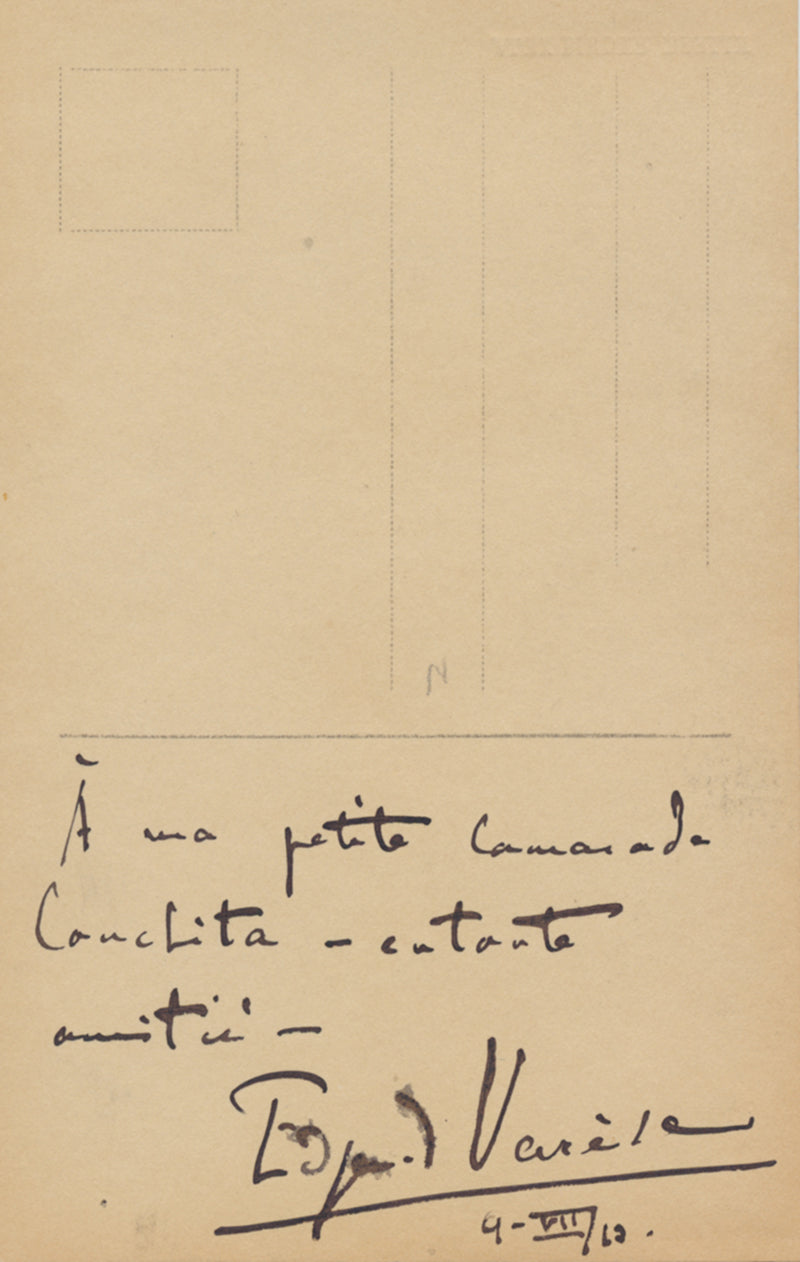 N
À ma petite camarade
Conchita – en toute
amitié –
Edgard Varèse
9-VII/12.